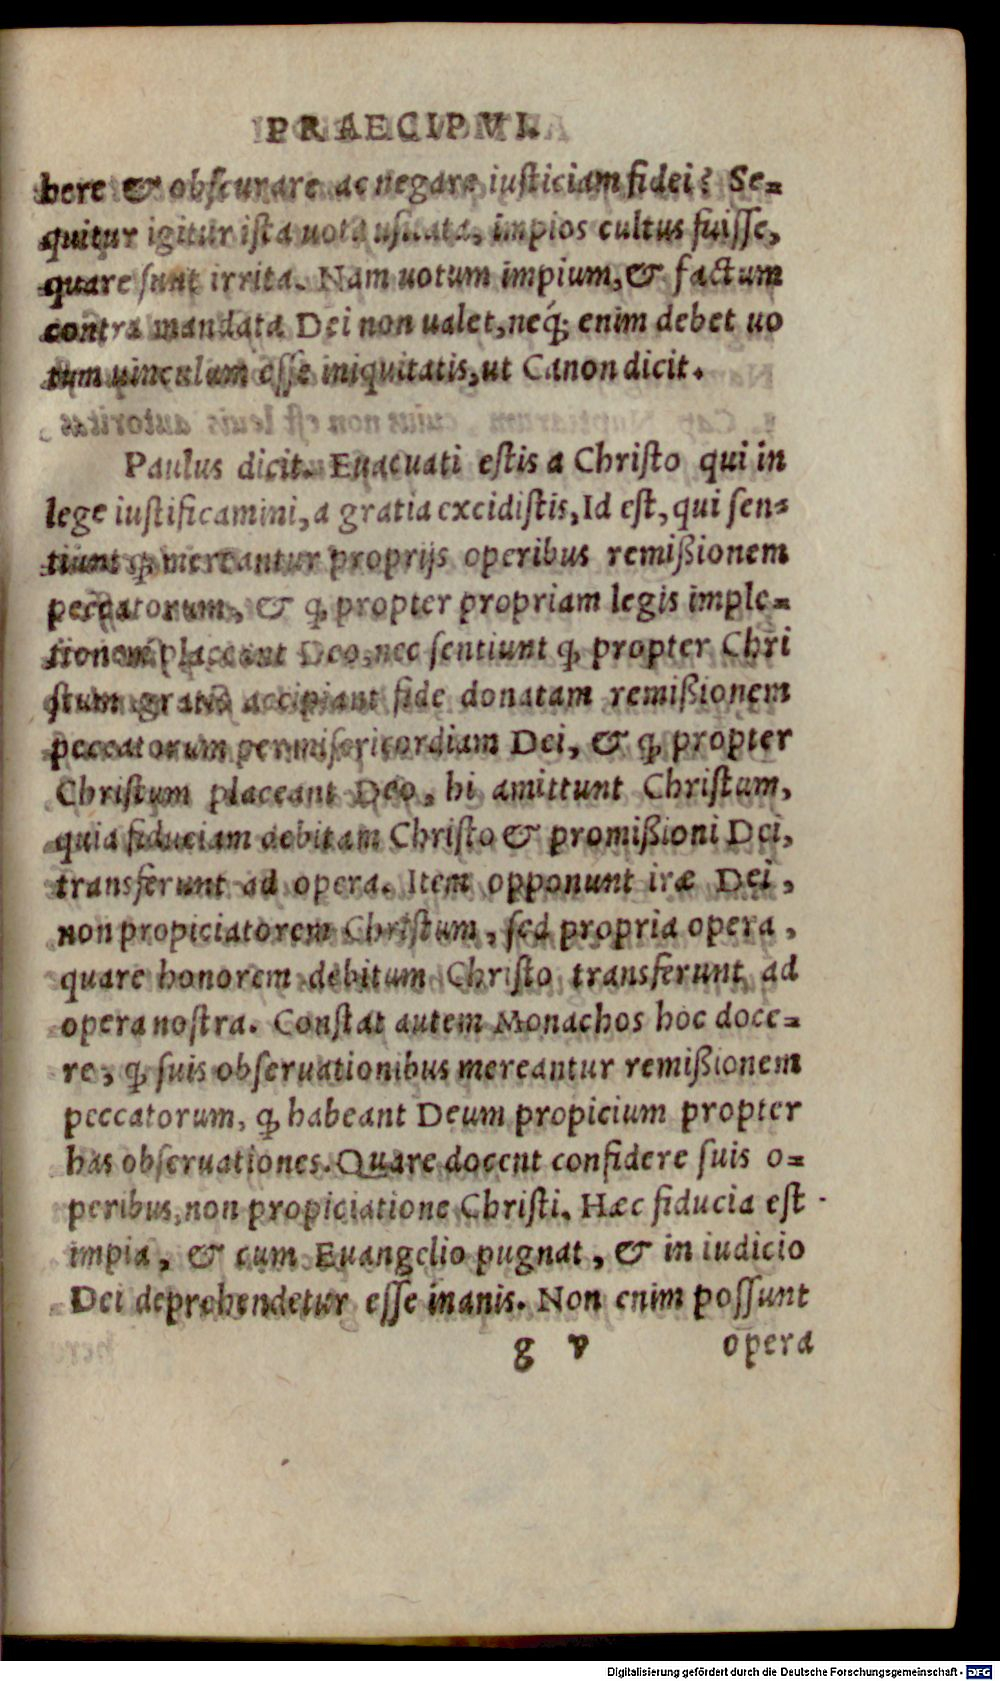 PRAECIPVI.
bere & obſcurare ac negare iuſticiam fidei? Se=
quitur igitur iſta uota uſitata, impios cultus fuiſſe,
quare ſunt irrita. Nam uotum impium, & factum
contra mandata Dei non ualet, neq́; enim debet uo
tum uinculum eſſe iniquitatis, ut Canon dicit.
Paulus dicit. Euacuati eſtis a Chriſto qui in
lege iuſtificamini, a gratia excidiſtis, Id eſt, qui ſen=
tiunt ꝙ mereantur proprijs operibus remißionem
peccatorum, & ꝙ propter propriam legis imple=
tionem placeant Deo, nec ſentiunt ꝙ propter Chri
ſtum gratis accipiant fide donatam remißionem
peccatorum per miſericordiam Dei, & ꝙ propter
Chriſtum placeant Deo, hi amittunt Chriſtum,
quia fiduciam debitam Chriſto & promißioni Dei,
transferunt ad opera. Item opponunt iræ Dei,
non propiciatorem Chriſtum, ſed propria opera,
quare honorem debitum Chriſto transferunt ad
opera noſtra. Conſtat autem Monachos hoc doce=
re, ꝙ ſuis obſeruationibus mereantur remißionem
peccatorum, ꝙ habeant Deum propicium propter
has obſeruationes. Quare docent confidere ſuis o=
peribus, non propiciatione Chriſti. Hæc fiducia eſt
impia, & cum Euangelio pugnat, & in iudicio
Dei deprehendetur eſſe inanis. Non enim poſſunt
g v opera
Digitalisierung gefördert durch die Deutsche Forschungsgemeinschaft - DFG